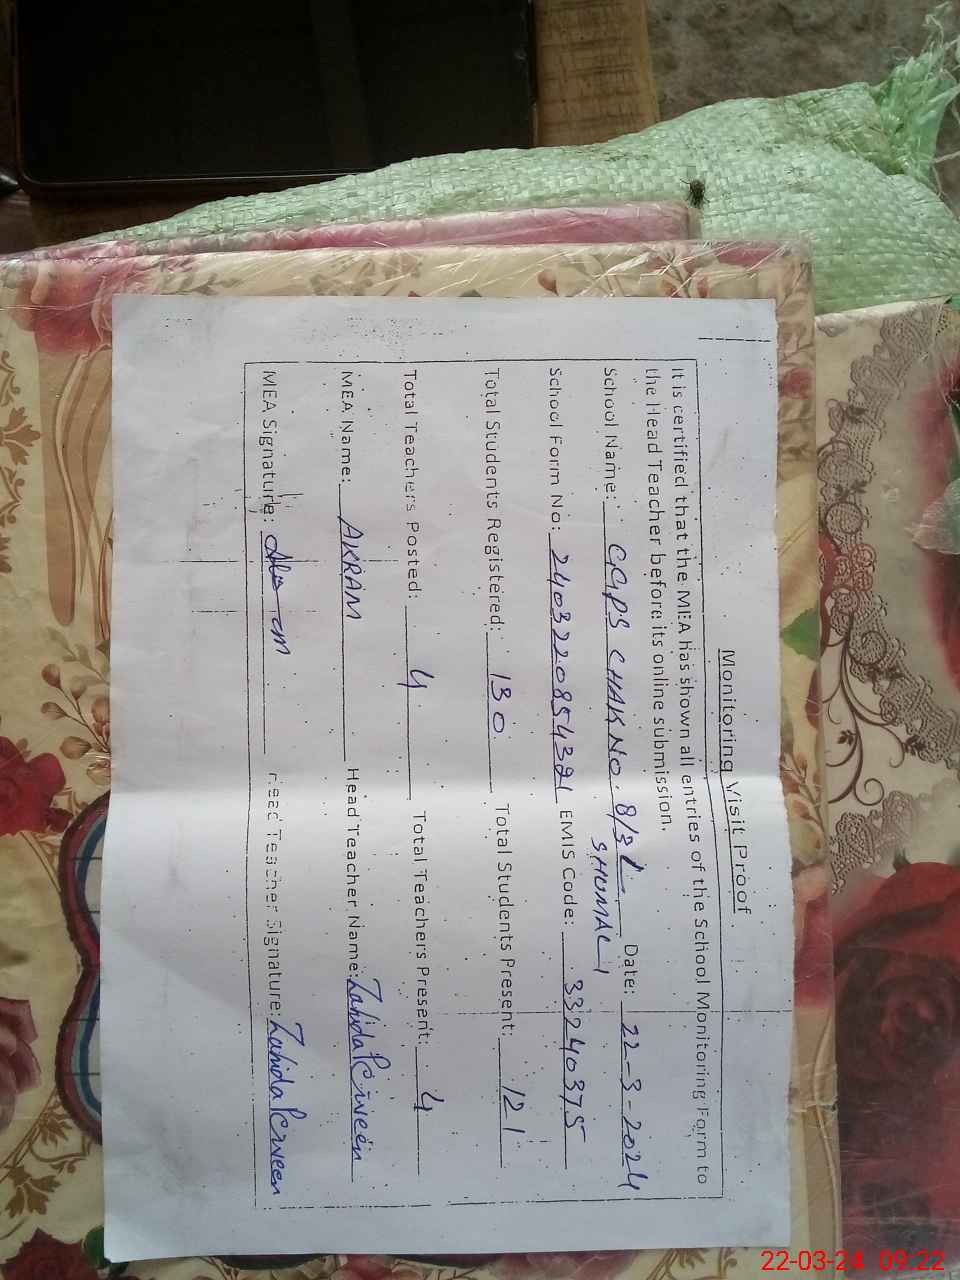 Monitoring Visit Proof
It is certified that the MEA has shown all entries of the School Monitoring Form to
the Head Teacher before its online submission.
School Name: GGPS CHAK NO. 8/3L Date: 22-3-2024
SHUMALI
School Form No: EMIS Code: 33240375
Total Students Registered: 130 Total Students Present: 121
Total Teachers Posted: 4 Total Teachers Present: 4
MEA Name: AKRAM Head Teacher Name: Zahida Perveen
MEA Signature: Head Teacher Signature: Zahida Perveen
22-03-24 09:22